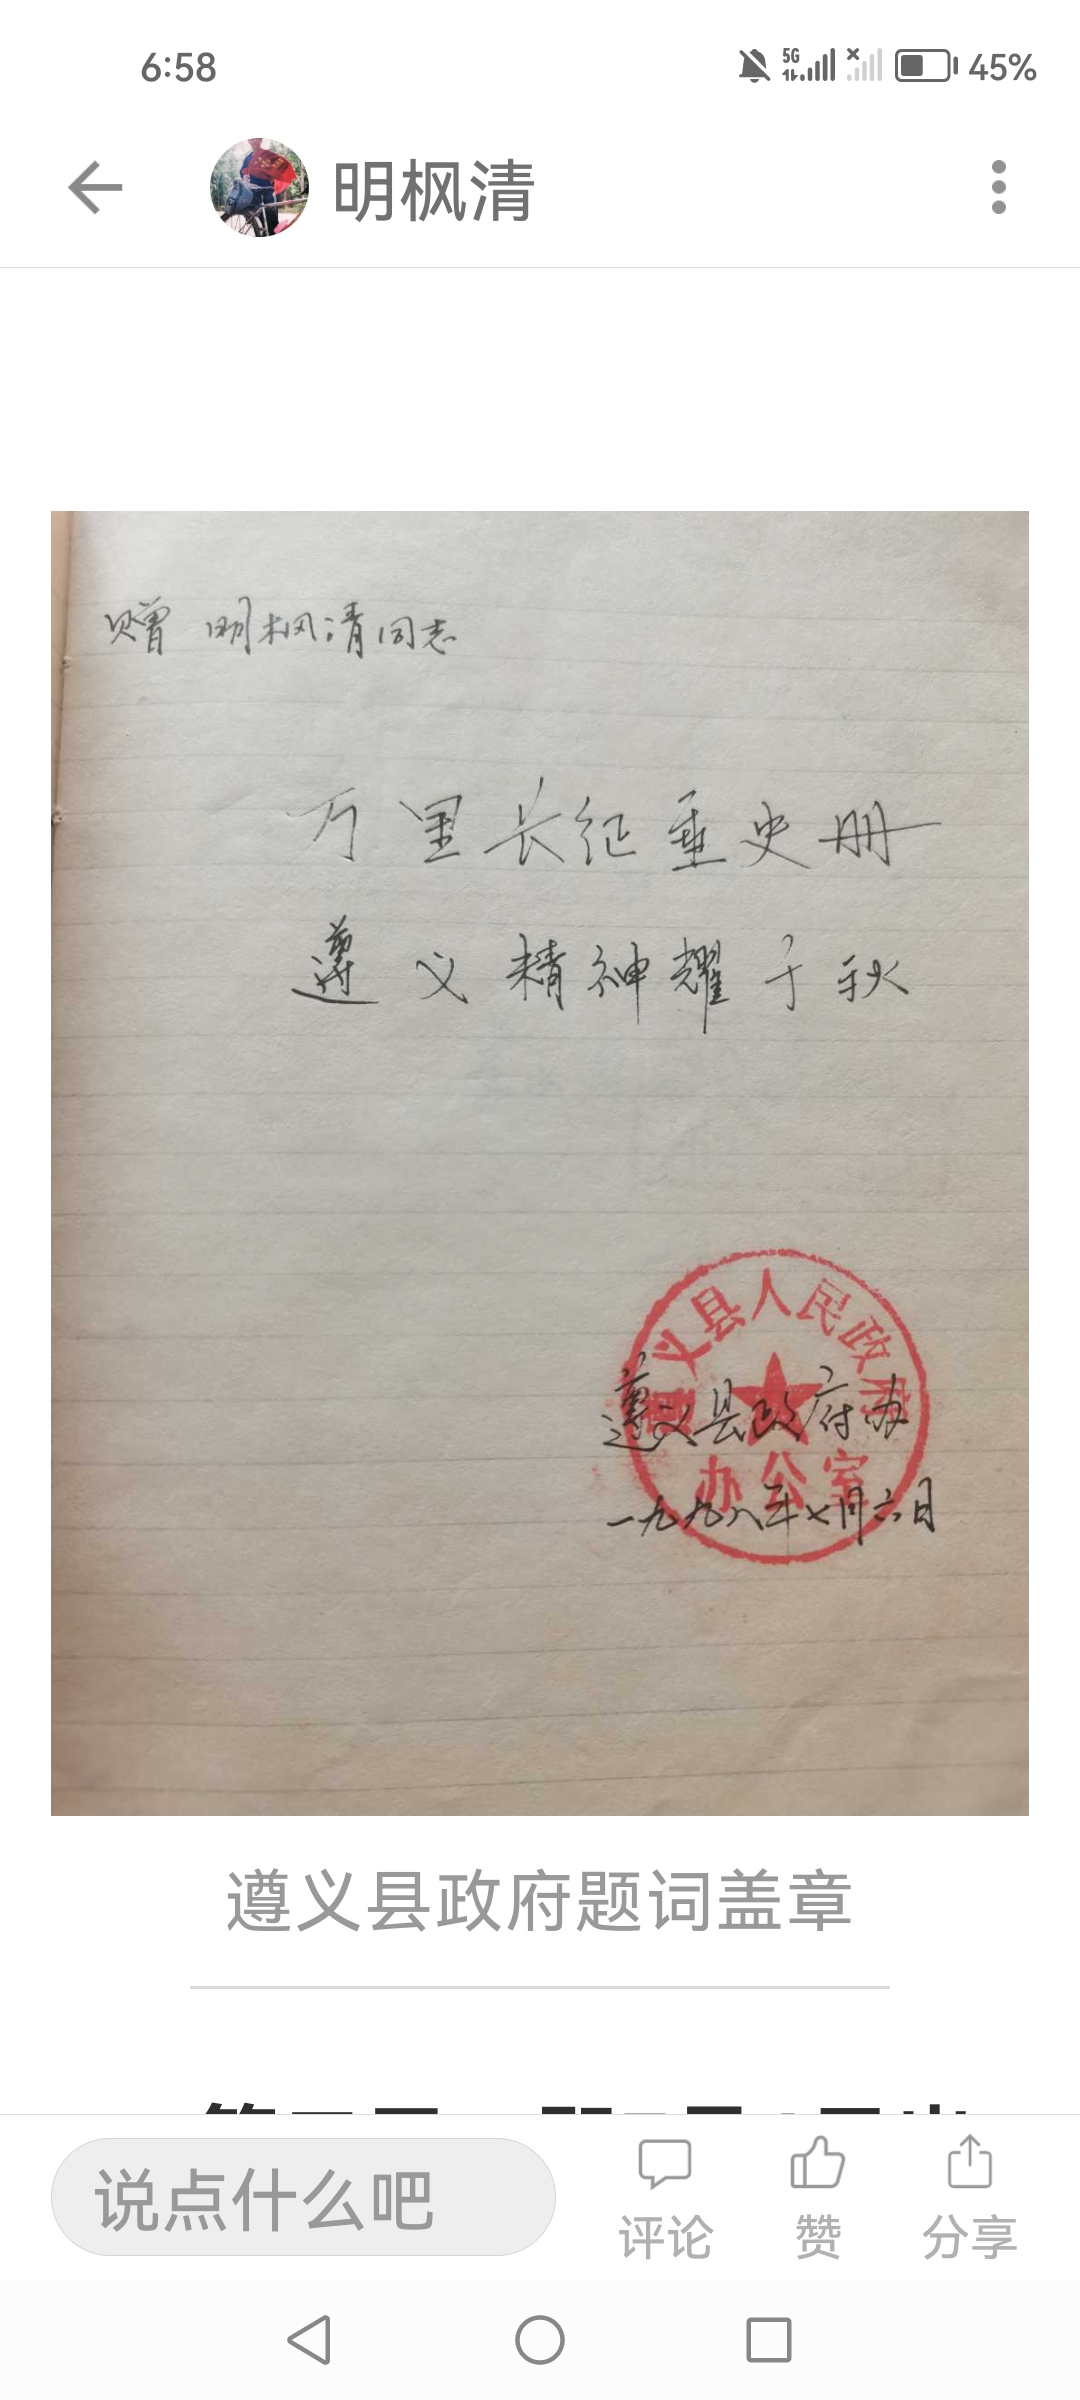 6:58
5G
45%
明枫清
赠 明枫清同志
万里长征垂史册
遵义精神耀千秋
遵义县人民政府
办公室
遵义县政府办
一九九八年七月六日
遵义县政府题词盖章
说点什么吧
评论
赞
分享